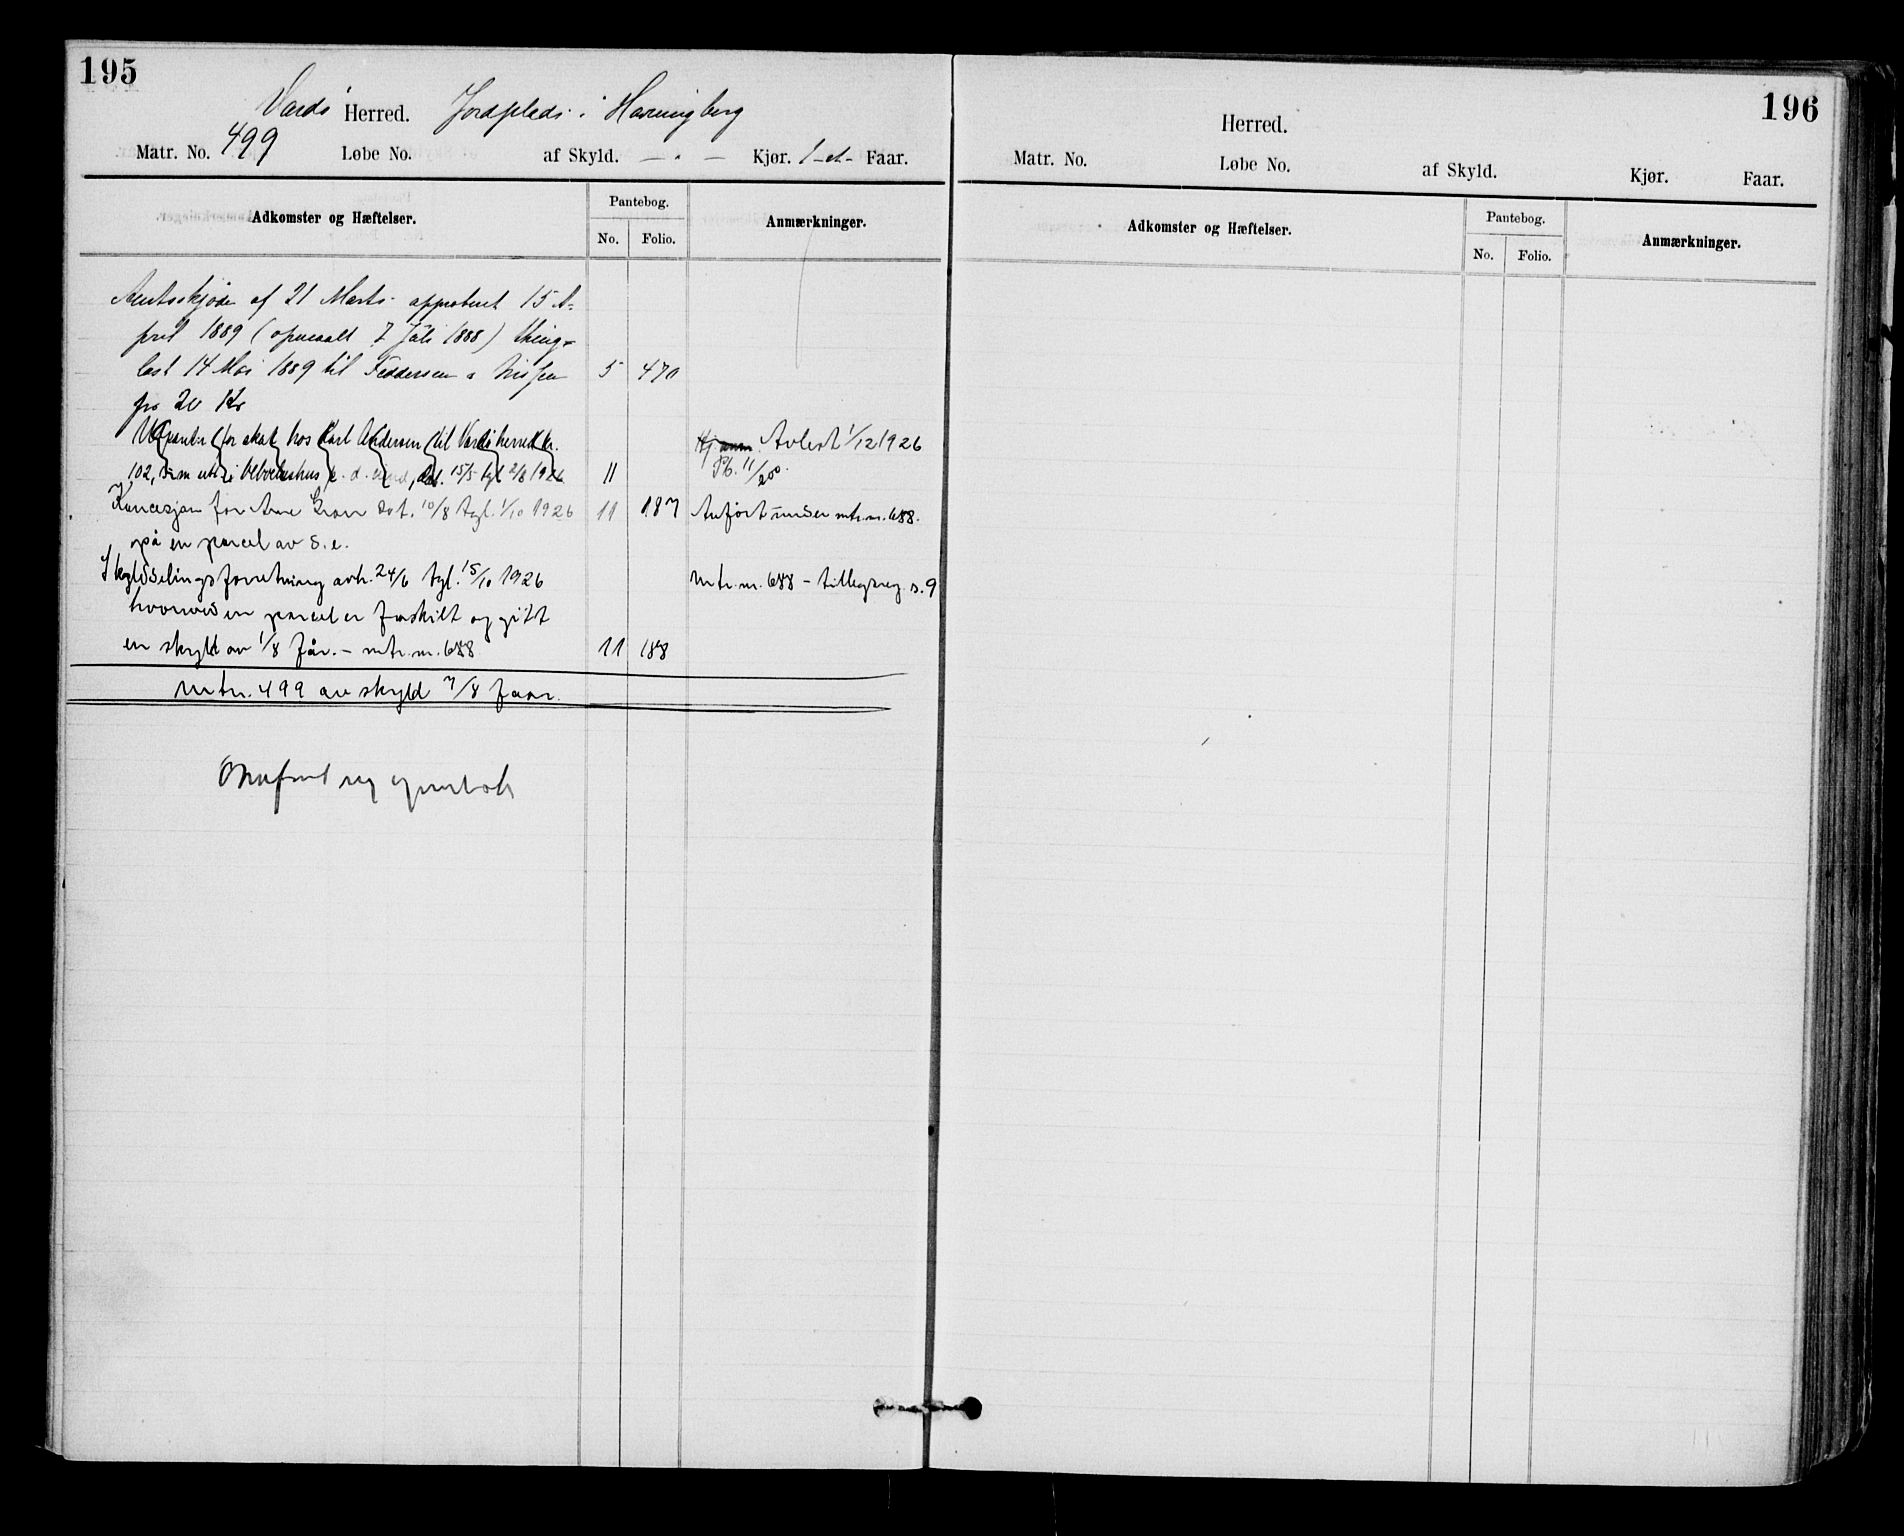 195
Vardö Herred. Jordplads i Havningberg
Matr. No. 499 Løbe No. af Skyld. — . — Kjør. 1 - et - Faar.
Adkomster og Hæftelser. Pantebog. Anmærkninger.
No. Folio.
Amtsskjøde af 21 Marts approberet 15 A-
pril 1889 (opmaalt 7 Juli 1888) thing-
læst 14 Mai 1889 til Feddersen & Nissen 5 470
for 20 Kr
Utpantn. for skat hos Karl Andersen til Vardö herred kr. Avlest 1/12 1926
102, som utv. i beboelseshus p. d. eiend, dat. 15/5 tgl 2/8 1926 11 Pb. 11/200.
Koncesjon for Arne Gron dat. 10/8 tgl. 1/10 1926 11 187 Anfört under mtr.nr. 688.
på en parcel av d. e.
Skylddelingsforretning avh. 24/6 tgl. 15/10 1926 mtr.nr. 688 - tilleggsreg. s. 9
hvorved en parcel er fraskilt og gitt
en skyld av 1/8 får. - mtr.nr. 688 11 188
mtr. 499 av skyld 7/8 faar.
196
Herred.
Matr. No. Løbe No. af Skyld. Kjør. Faar.
Adkomster og Hæftelser. Pantebog. Anmærkninger.
No. Folio.